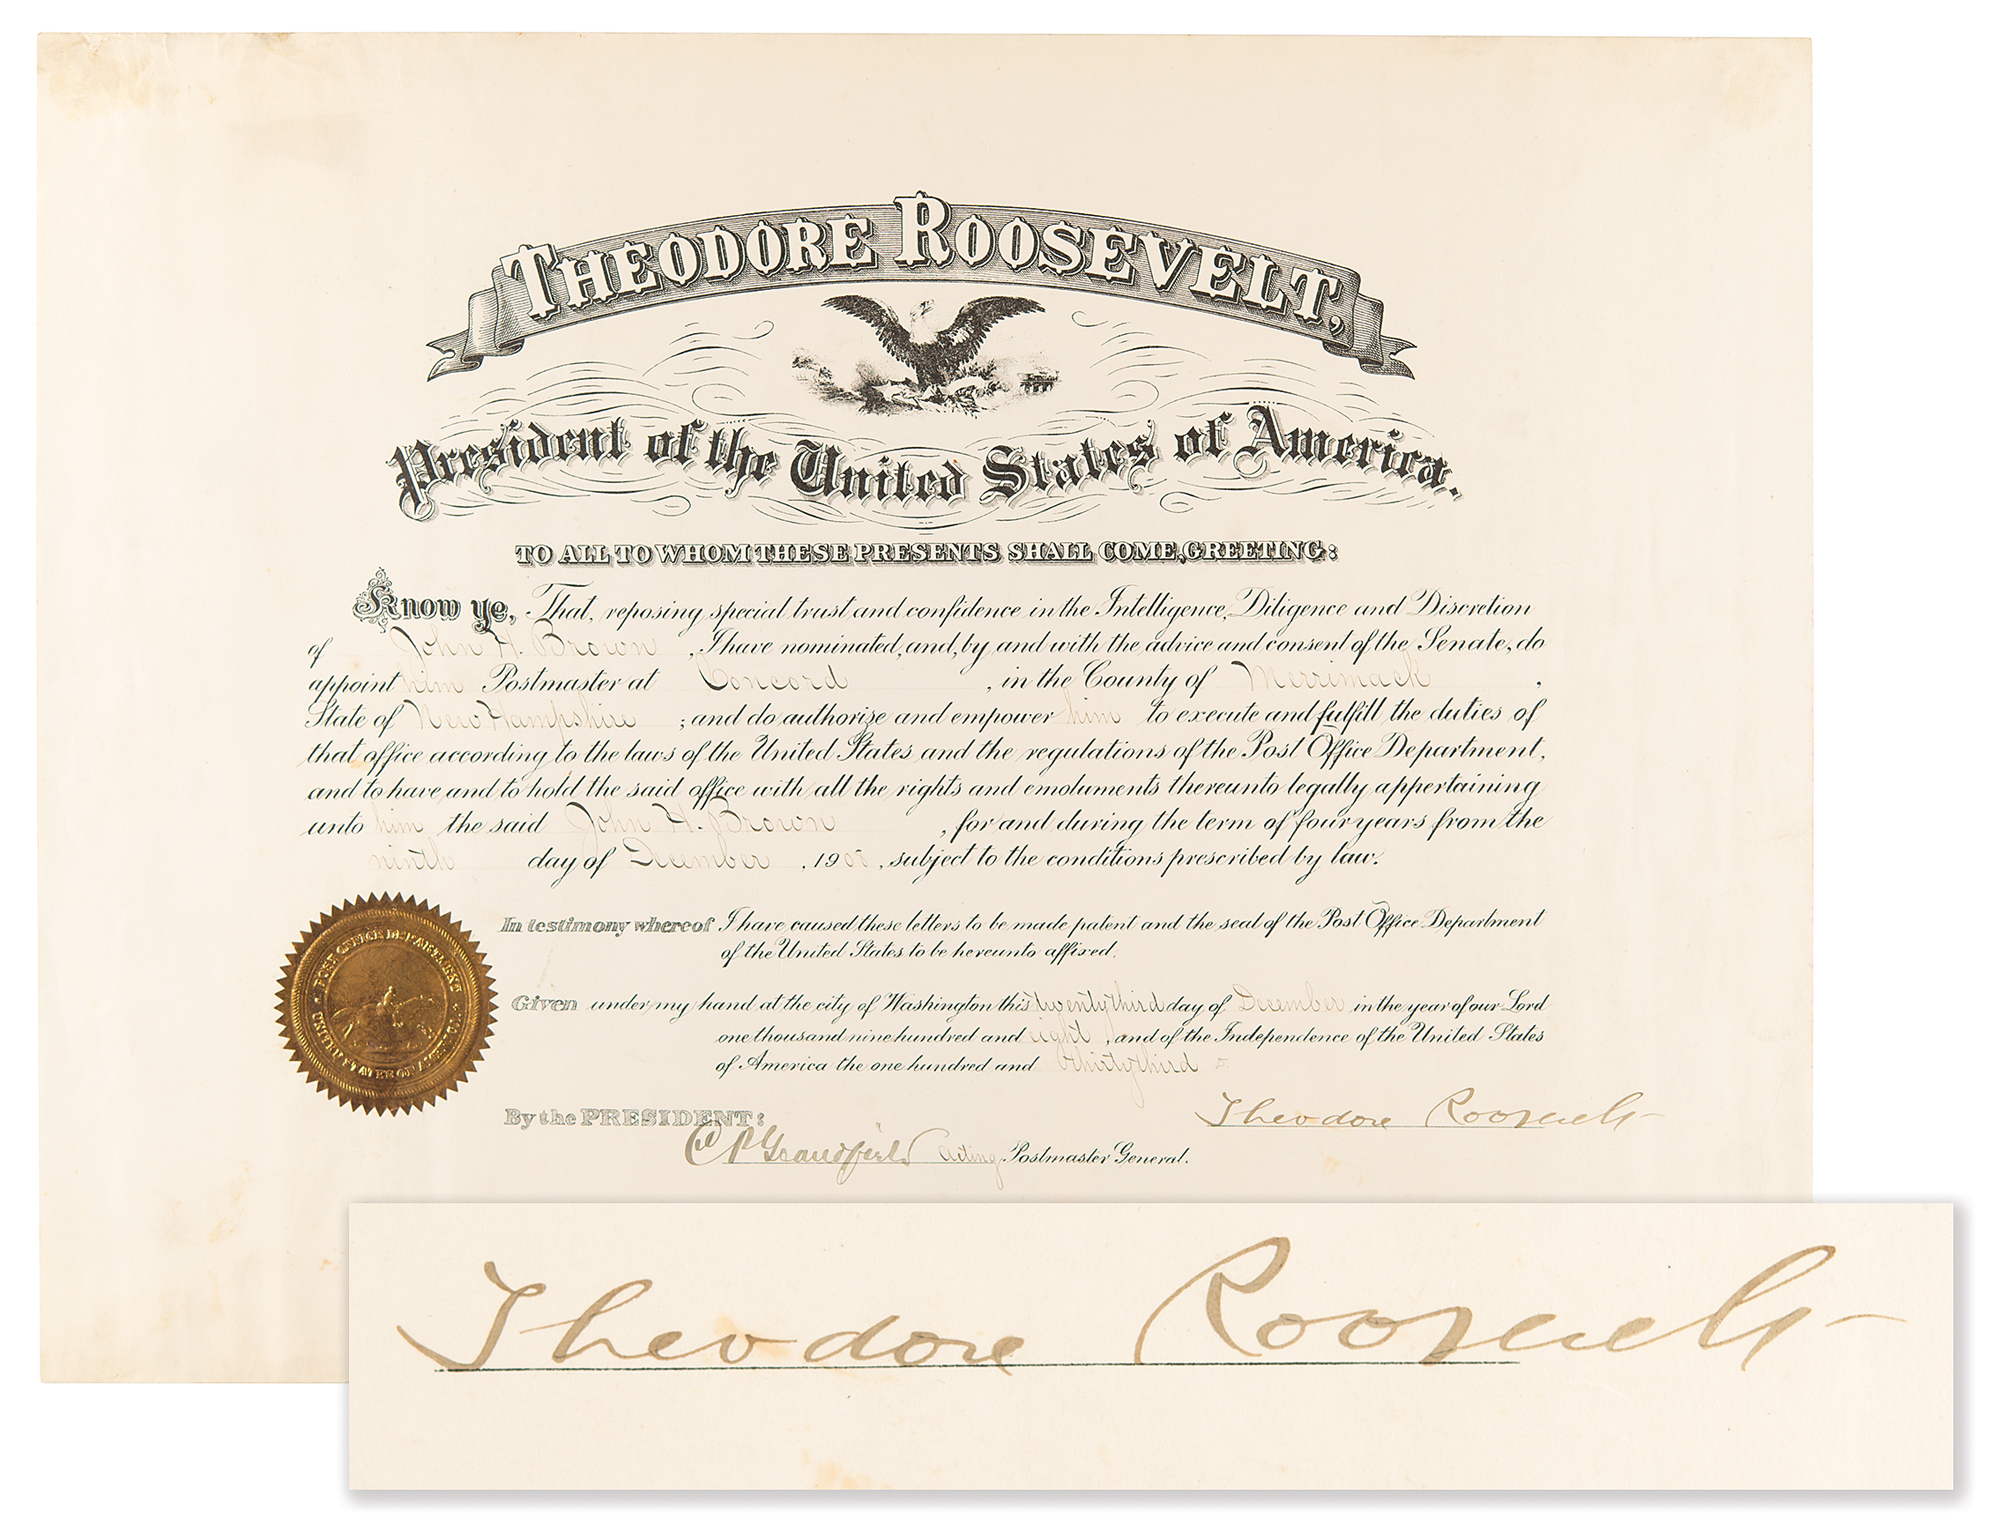 THEODORE ROOSEVELT,
President of the United States of America.
TO ALL TO WHOM THESE PRESENTS SHALL COME, GREETING:
Know ye, That, reposing special trust and confidence in the Intelligence, Diligence and Discretion
of John H. Brown, I have nominated, and, by and with the advice and consent of the Senate, do
appoint him Postmaster at Concord, in the County of Merrimack,
State of New Hampshire; and do authorize and empower him to execute and fulfill the duties of
that office according to the laws of the United States and the regulations of the Post Office Department,
and to have and to hold the said office with all the rights and emoluments thereunto legally appertaining
unto him the said John H. Brown, for and during the term of four years from the
ninth day of December, 1908, subject to the conditions prescribed by law.
In testimony whereof I have caused these letters to be made patent and the seal of the Post Office Department
of the United States to be hereunto affixed.
Given under my hand at the city of Washington this twenty third day of December in the year of our Lord
one thousand nine hundred and eight, and of the Independence of the United States
of America the one hundred and thirty third
POST OFFICE DEPARTMENT
UNITED STATES OF AMERICA
Theodore Roosevelt
By the PRESIDENT:
C P Grandfield Acting Postmaster General.
Theodore Roosevelt